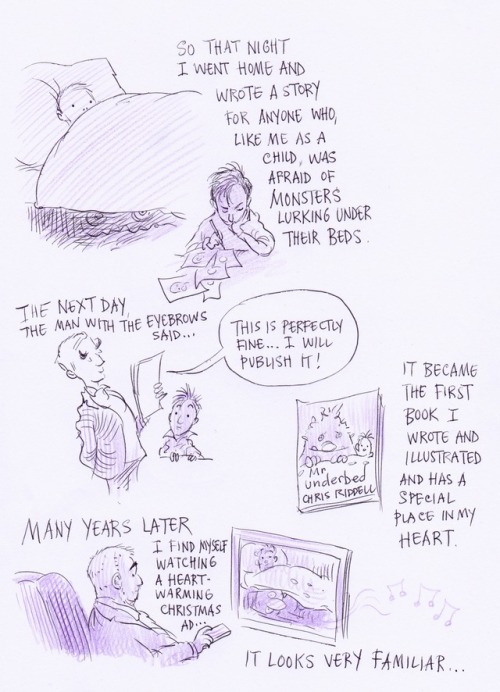 SO THAT NIGHT
I WENT HOME AND
WROTE A STORY
FOR ANYONE WHO,
LIKE ME AS A
CHILD, WAS
AFRAID OF
MONSTERS
LURKING UNDER
THEIR BEDS.
THE NEXT DAY,
THE MAN WITH THE EYEBROWS
SAID...
THIS IS PERFECTLY
FINE... I WILL
PUBLISH IT!
Mr
underbed
CHRIS RIDDELL
IT BECAME
THE FIRST
BOOK I
WROTE AND
ILLUSTRATED
AND HAS A
SPECIAL
PLACE IN MY
HEART.
MANY YEARS LATER
I FIND MYSELF
WATCHING
A HEART-
WARMING
CHRISTMAS
AD...
IT LOOKS VERY FAMILIAR...